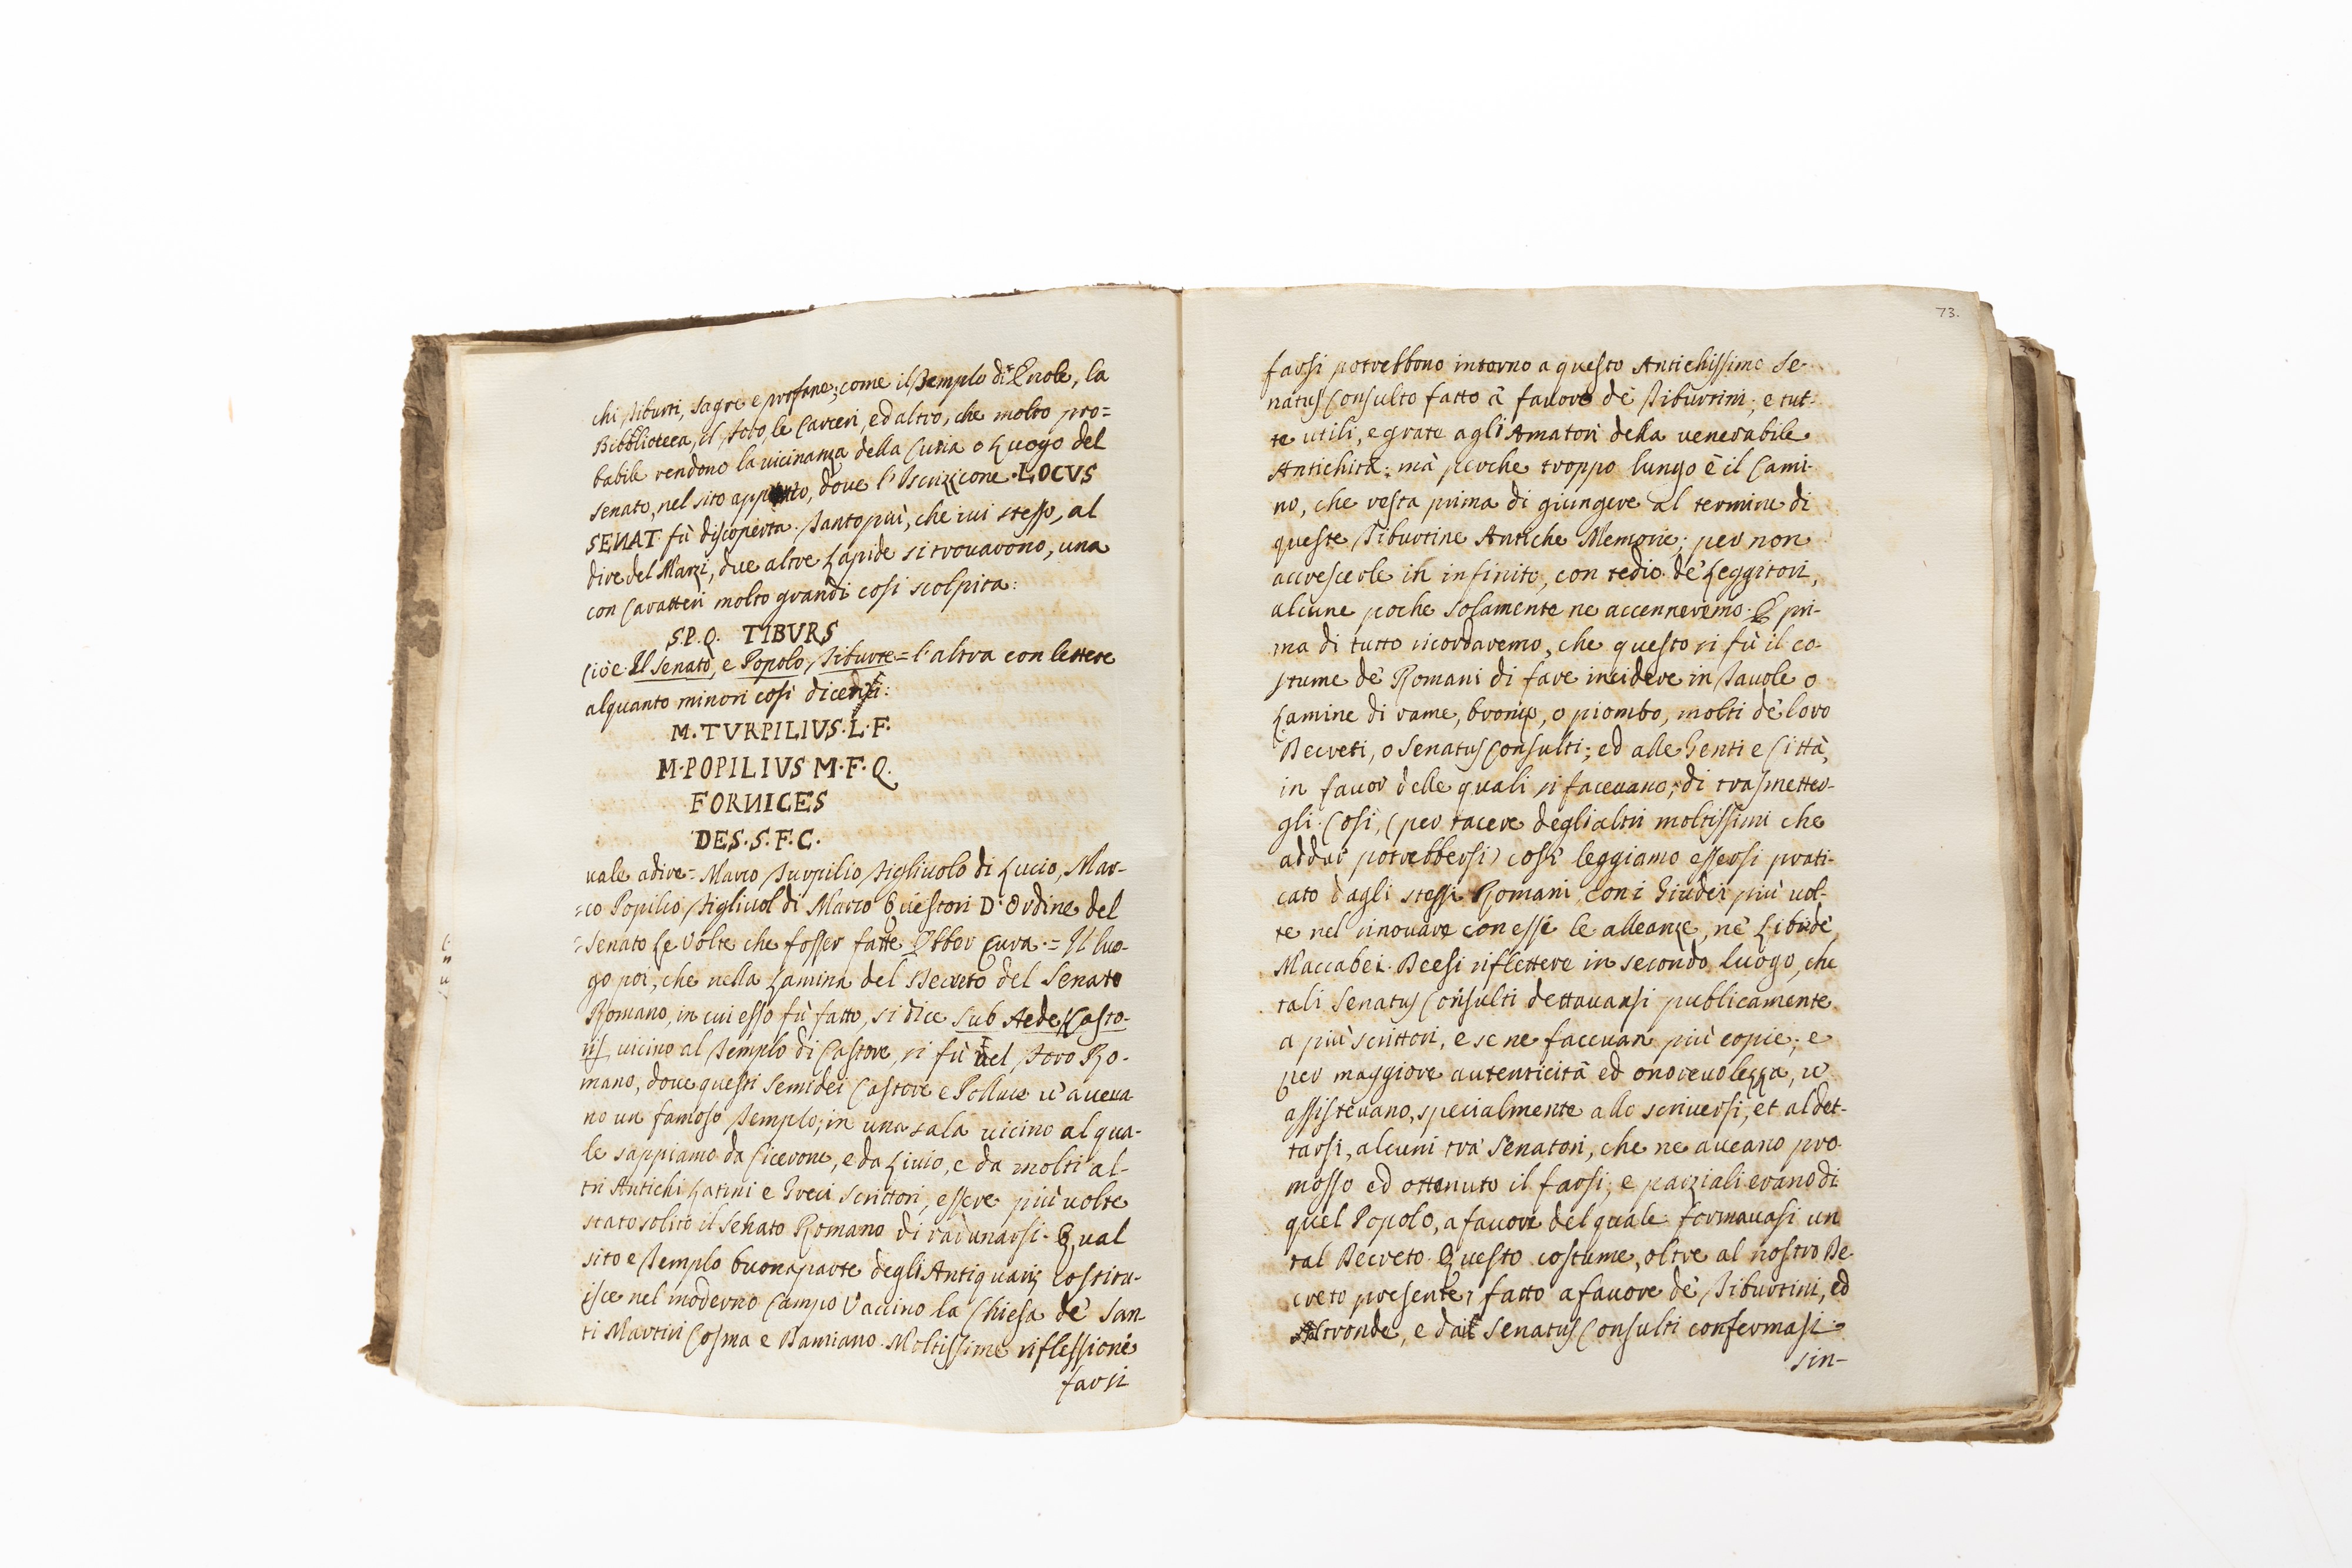 chi Tiburti, sagre e profane; come il Templo di Ercole, la
Bibblioteca, il Foro, le Carceri, ed altro, che molto pro=
babile rendono la vicinanza della Curia o Luogo del
senato, nel sito appunto, dove l'Iscrizzione LOCVS
SENAT fù discoperta. Tanto più, che ivi stesso, al
dire del Marzi, due altre Lapide si trovarono, una
con Caratteri molto grandi così scolpita:
S.P.Q. TIBVRS
Cioè Il Senato, e Popolo Tiburte = l'altra con lettere
alquanto minori così dicenti:
M. TVRPILIVS. L. F.
M. POPILIVS M. F. Q.
FORNICES
DES. S. F. C.
vale a dire = Marco Turpilio Figliuolo di Lucio, Mar-
=co Popilio Figliuol di Marco Questori D'Ordine del
=Senato Le Volte che fosser fatte Ebber Cura. = Il luo-
go poi, che nella Lamina del Decreto del Senato
Romano, in cui esso fù fatto, si dice Sub Aede Casto-
ris, vicino al Templo di Castore, si fù nel Foro Ro-
mano, dove questi Semidei Castore e Polluce v'aveva-
no un famoso Templo; in una sala vicino al qua-
le sappiamo da Cicerone, e da Livio, e da molti al-
tri Antichi Latini e Greci Scrittori, essere più volte
stato solito il Senato Romano di radunarsi. Qual
sito e Templo buona parte degli Antiquarj costitu-
isce nel moderno Campo Vaccino la Chiesa de' San-
ti Martiri Cosma e Damiano. Moltissime riflessioni
farsi
73.
farsi potrebbono intorno a questo Antichissimo Se-
natus Consulto fatto à favore de' Tiburtini; e tut-
te utili, e grate agli Amatori della venerabile
Antichità: mà perche troppo lungo è il Cami-
no, che resta prima di giungere al termine di
queste Tiburtine Antiche Memorie; per non
accrescerle in infinito, con tedio de' Leggitori,
alcune poche solamente ne accenneremo. E pri-
ma di tutto ricordaremo, che questo si fù il co-
stume de' Romani di fare incidere in Tavole o
Lamine di rame, bronzo, o piombo, molti de' loro
Decreti, o Senatus Consulti; ed alle Genti e Città,
in favor delle quali si facevano, di trasmetter-
gli. Così, (per tacere degli altri moltissimi che
addur potrebbersi) così leggiamo essersi prati-
cato dagli stessi Romani con i Giudei più vol-
te nel rinovare con essi le alleanze, ne' Libri de'
Maccabei. Deesi riflettere in secondo luogo, che
tali Senatus Consulti dettavansi publicamente
a più scrittori, e se ne facevan più copie; e
per maggiore autenticità ed onorevolezza, v'
assistevano, specialmente allo scriversi, et al det-
tarsi, alcuni trà Senatori, che ne aveano pro-
mosso ed ottenuto il farsi; e parziali erano di
quel Popolo, a favore del quale formavasi un
tal Decreto. Questo costume, oltre al nostro De-
creto presente, fatto a favore de' Tiburtini, ed
Altronde, e da' Senatus Consulti confermasi
sin-